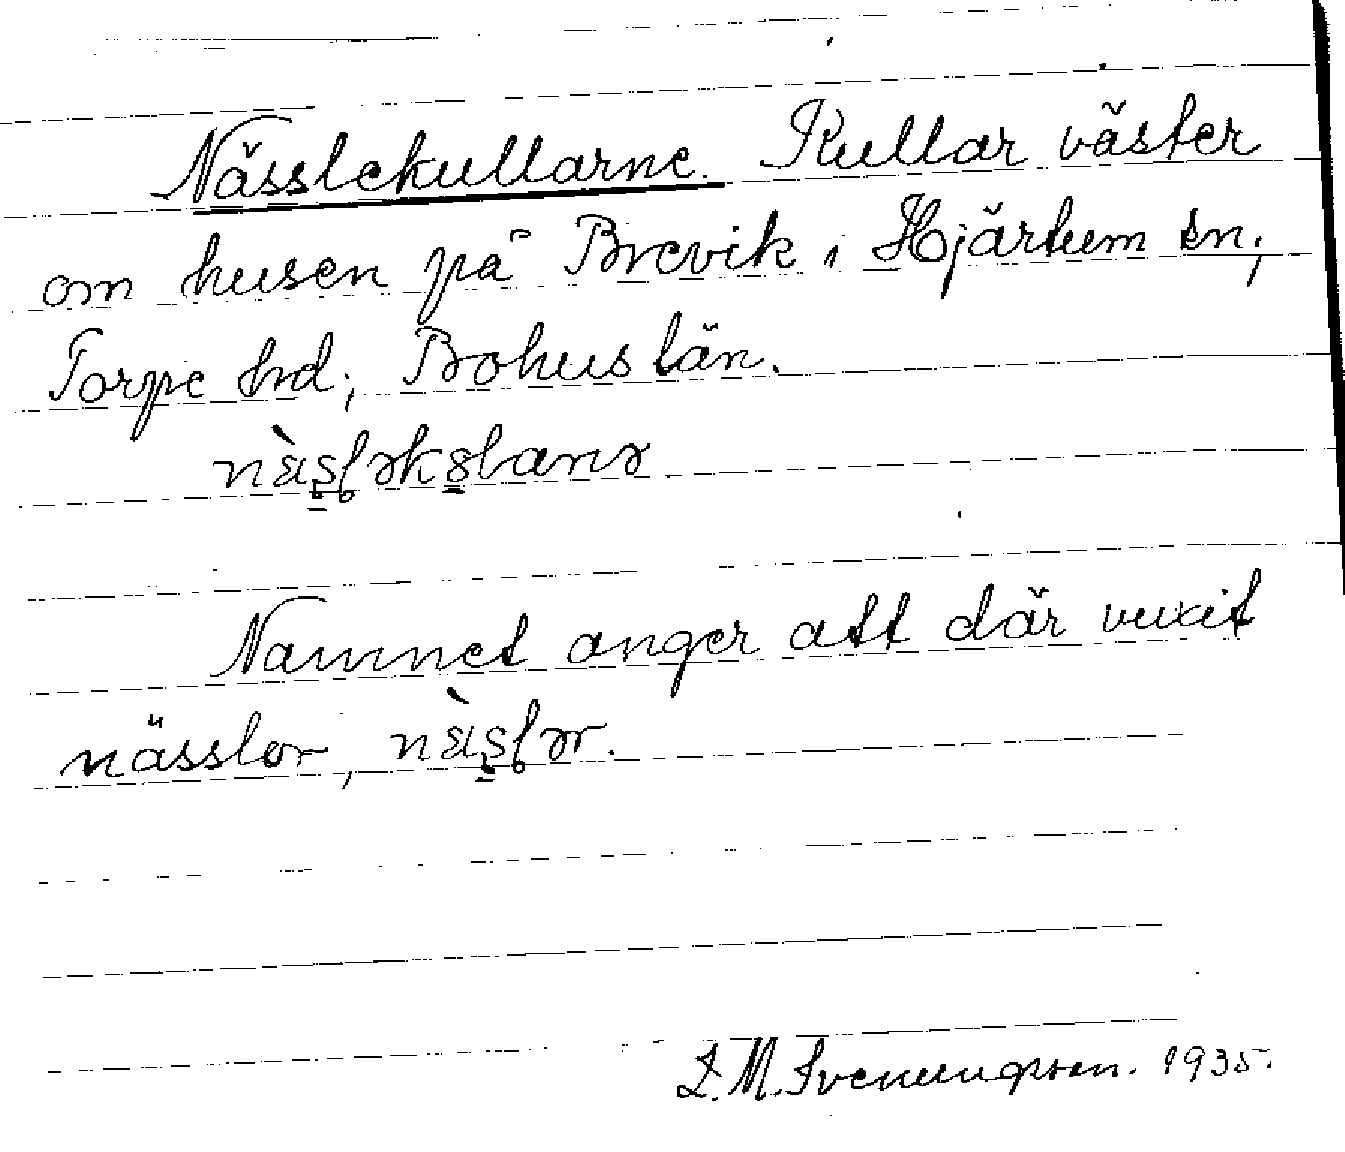 Nässlekullarne. Kullar väster
om husen på Brevik i Hjärtum sn,
Torpe hrd, Bohuslän.
Namnet anger att där vuxit
nässlor,
L. M. Svenungsson. 1935.